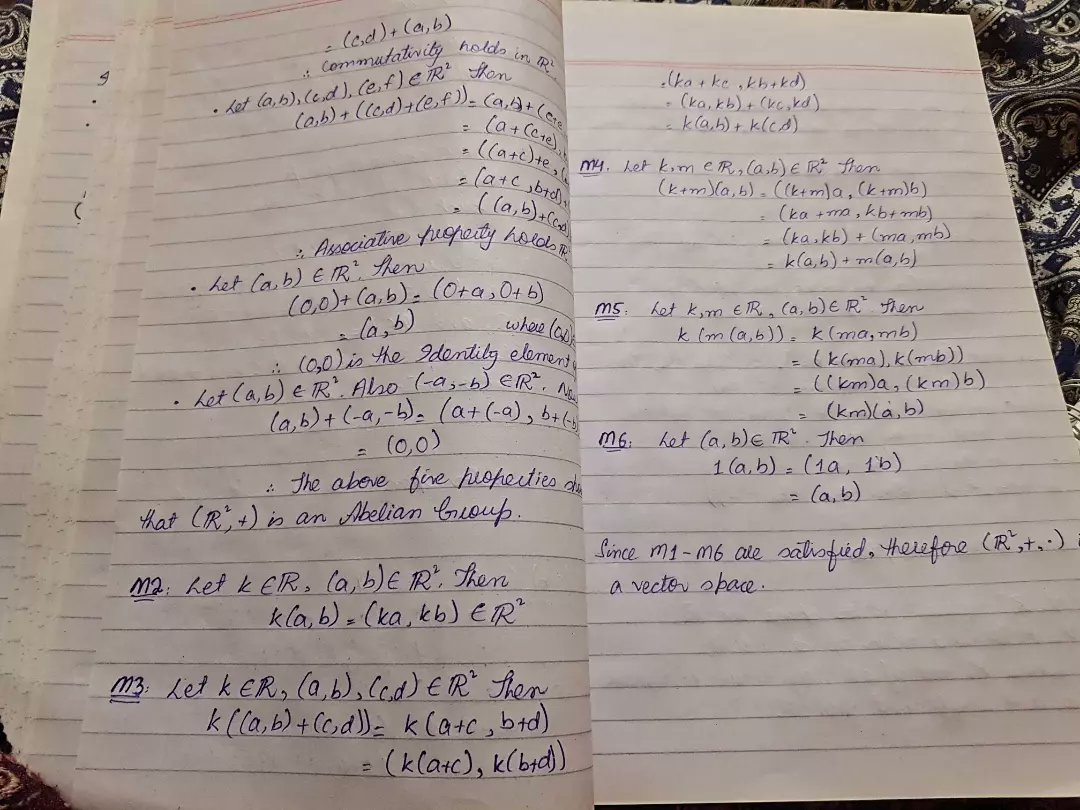 = (c,d)+(a,b)
∴ commutativity holds in ℝ²
• Let (a,b), (c,d), (e,f) ∈ ℝ² Then
(a,b) + ((c,d)+(e,f)) = (a,b) + (c+e
= (a+(c+e),
= ((a+c)+e, (
= (a+c, b+d)
= ((a,b)+(c,d)
∴ Associative property holds
• Let (a,b) ∈ ℝ². Then
(0,0)+(a,b) = (0+a, 0+b)
= (a,b) where (0,0)
∴ (0,0) is the Identity element
• Let (a,b) ∈ ℝ². Also (-a,-b) ∈ ℝ². Now
(a,b) + (-a,-b) = (a+(-a), b+(-b
= (0,0)
∴ The above five properties
that (ℝ²,+) is an Abelian Group.
M2: Let k ∈ ℝ, (a,b) ∈ ℝ². Then
k(a,b) = (ka, kb) ∈ ℝ²
M3: Let k ∈ ℝ, (a,b), (c,d) ∈ ℝ² Then
k((a,b)+(c,d)) = k(a+c, b+d)
= (k(a+c), k(b+d))
= (ka+kc, kb+kd)
= (ka,kb) + (kc,kd)
= k(a,b) + k(c,d)
M4. Let k,m ∈ ℝ, (a,b) ∈ ℝ² Then
(k+m)(a,b) = ((k+m)a, (k+m)b)
= (ka+ma, kb+mb)
= (ka,kb) + (ma,mb)
= k(a,b) + m(a,b)
M5: Let k,m ∈ ℝ, (a,b) ∈ ℝ². Then
k(m(a,b)) = k(ma,mb)
= (k(ma), k(mb))
= ((km)a, (km)b)
= (km)(a,b)
M6: Let (a,b) ∈ ℝ². Then
1(a,b) = (1a, 1b)
= (a,b)
Since M1-M6 are satisfied, therefore (ℝ²,+,·)
a vector space.